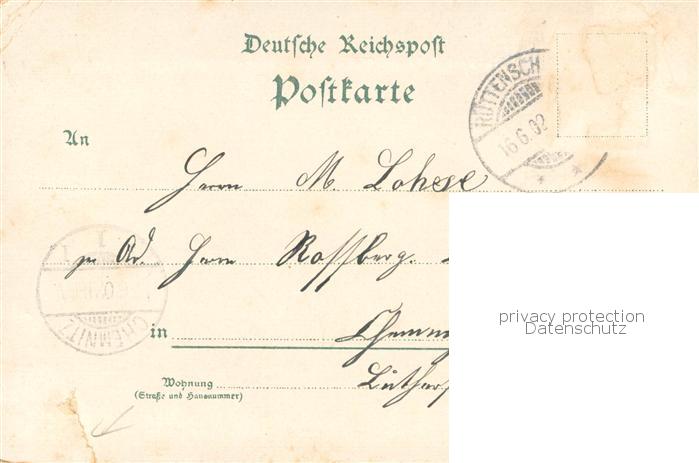 Deutsche Reichspost
Postkarte
RÜTTENSCH
16.6.02
An
Herrn M. Lohse
Ad. Herrn Rossberg.
CHEMNITZ
1
in Chemn
Wohnung Luthers
(Straße und Hausnummer)
privacy protection
Datenschutz